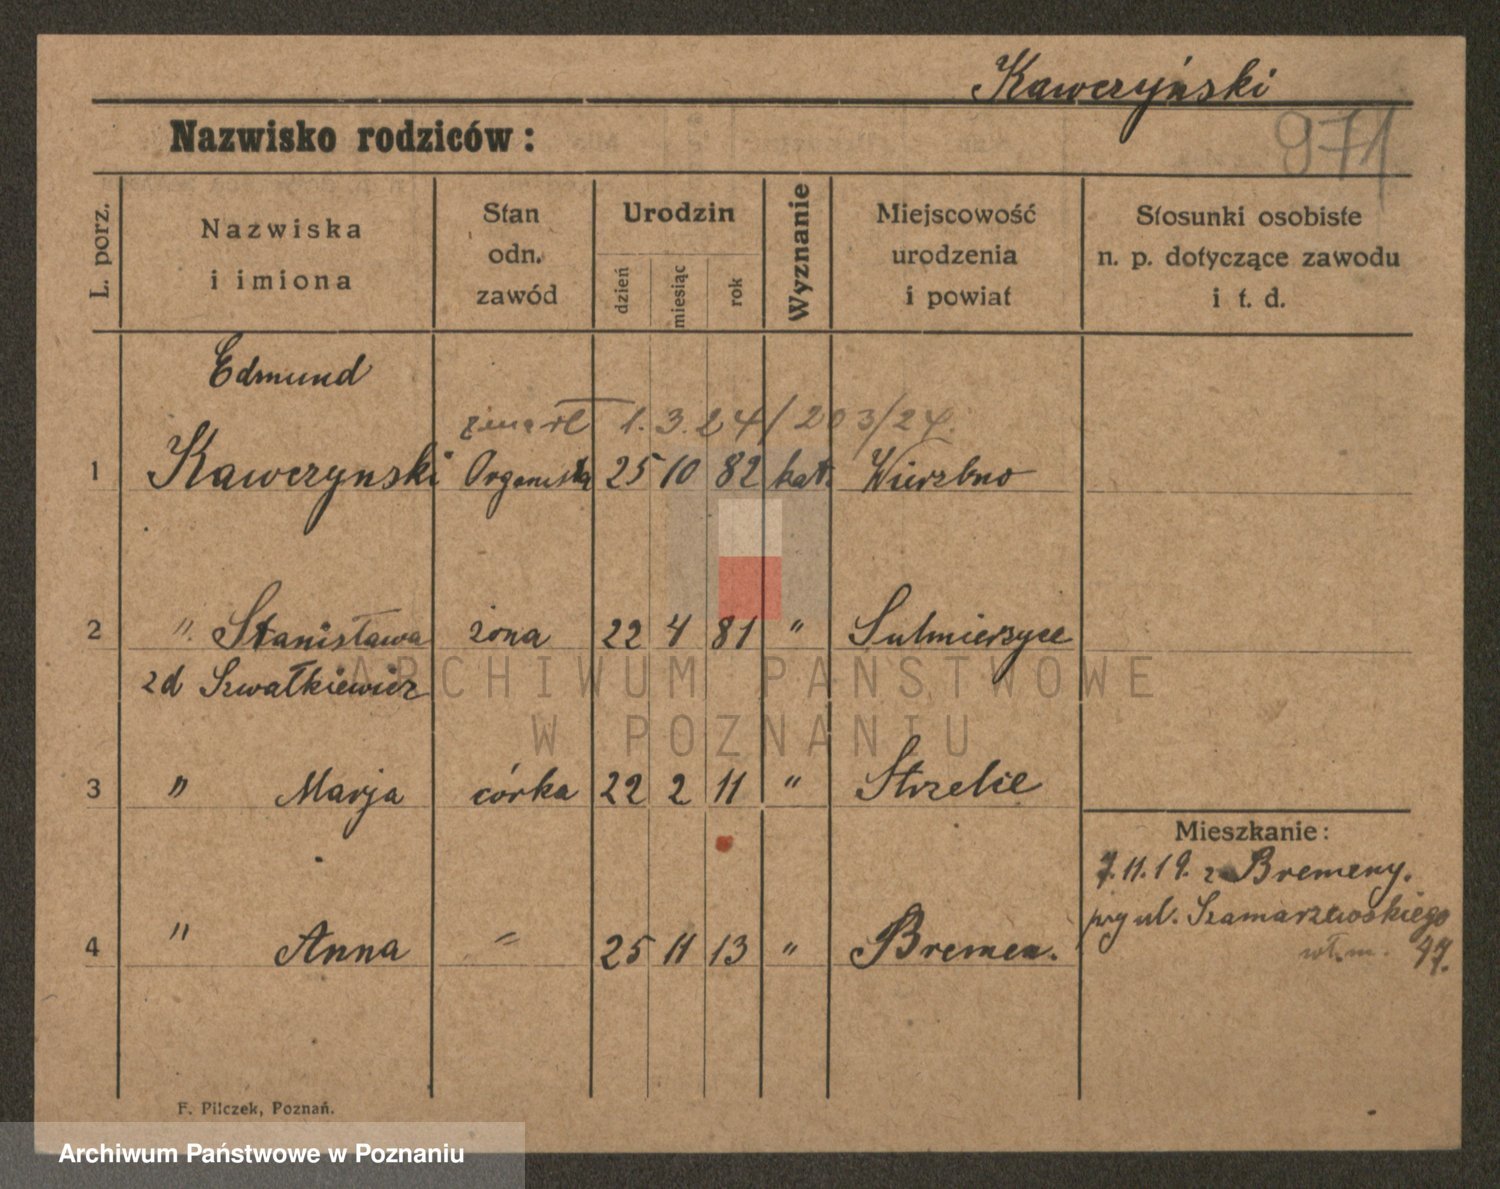 Kawczyński
971
Nazwisko rodziców:
L. porz.
Nazwiska
i imiona
Stan
odn.
zawód
Urodzin
dzień
miesiąc
rok
Wyznanie
Miejscowość
urodzenia
i powiat
Stosunki osobiste
n. p. dotyczące zawodu
i t. d.
Edmund
zmarł 1.3.24/203/24.
1 Kawczynski Organista 25 10 82 kat. Wierzbno
2 " Stanisława żona 22 4 81 " Sulmierzyce
zd Szwałkiewicz
ARCHIWUM PAŃSTWOWE
W POZNANIU
3 " Marja córka 22 2 11 " Strzelce
Mieszkanie:
7.11.19. z Bremeny.
przy ul. Szamarzewskiego
wł.m. 47.
4 " Anna " 25 11 13 " Bremen.
F. Pilczek, Poznań.
Archiwum Państwowe w Poznaniu